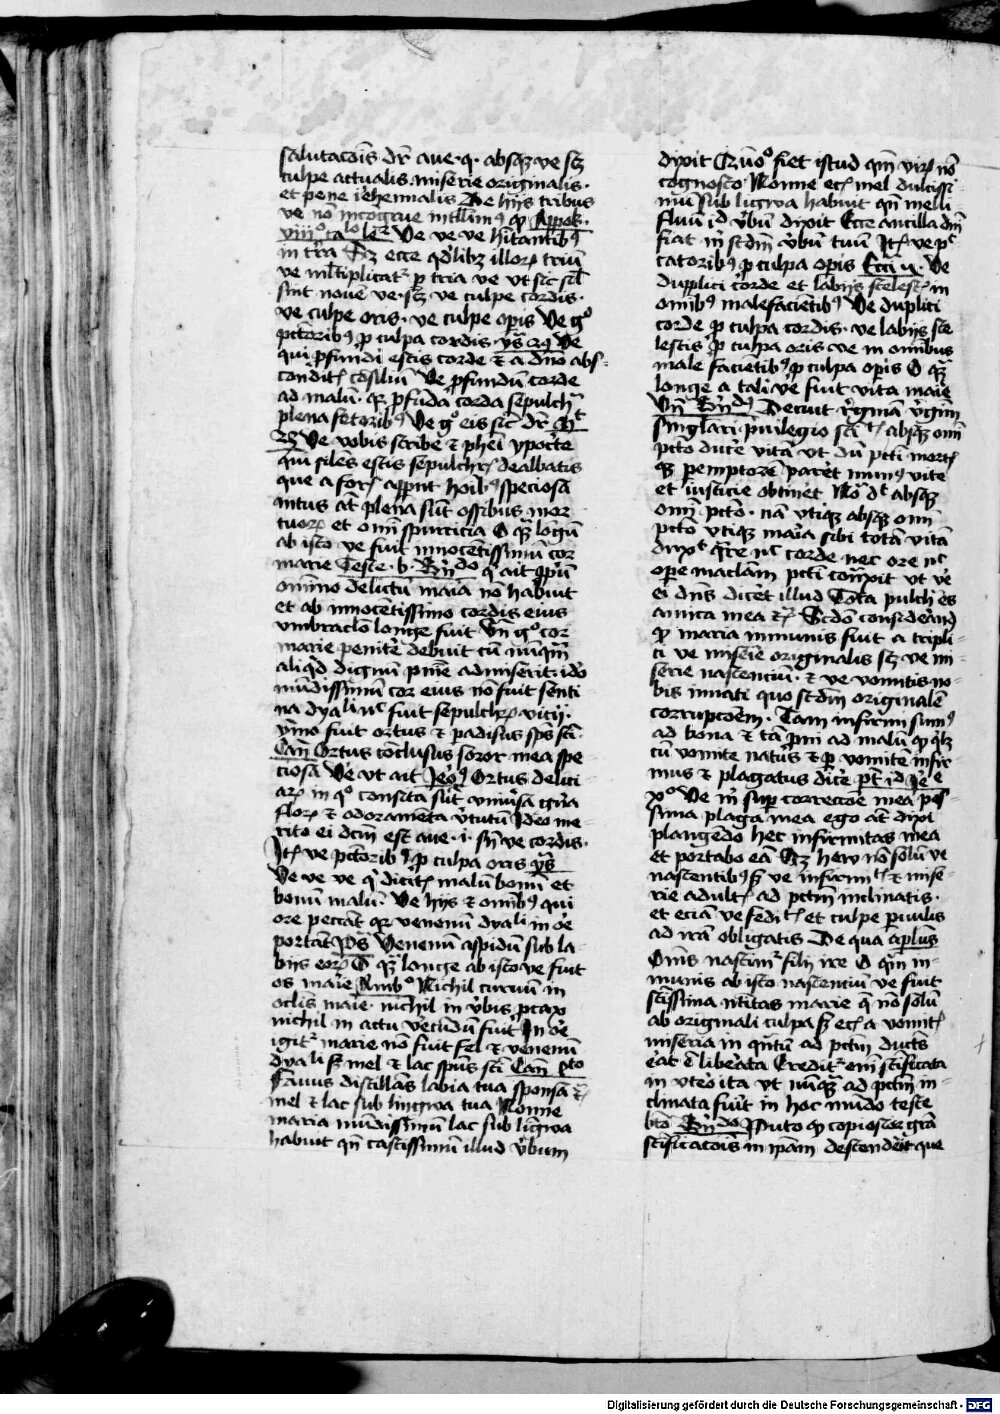 salutac̄ōis dr̄ aue · q̇ · absq̢ ve sꝫ
culpe actualis miserie originalis ·
et pene iehennalis De hijs tribus
ve nō incogrue intll̄im⁹ ꝙ Appok̄ ·
viiiº caº leꝛ Ve ve ve hītantibꝫ
in tr̄ra Sꝫ ecce qd̄libꝫ illoꝝ triū
ve ml̄tiplicatꝰ ꝑ tria ve vt sic sīt
sint nouē ve · sꝫ ve culpe cordis ·
ve culpe oris · ve culpe oꝑis Ve gº
pctoribꝫ ꝓ culpa cordis · ys̄ 29 Ve
qui ꝓfundi estis corde ⁊ a dn̄o abs-
conditꝭ cōsiliū Ve ꝓfundū corde
ad malū · qꝫ ꝓfūda corda sepulchꝭ
plena fetoribꝫ Ve gº eis sic dr̄ Mᵗ
23 Ve vobis scribe ⁊ phēi ypocte
qui siles estis sepulchrꝭ dealbatis
que a forꝭ appnt hoibꝫ speciosa
intus āt plena sūt ossibus mor
tuoꝝ et om̄i spurcicia O q̄ lōgū
ab isto ve fuit innocētissimū cor
marie Teste · b · B̄n̄do q̇ ait ip̄m
omīno delictū maīa nō habuit
et ab innocētissimo cordis eius
vmbraclo longe fuit Vn̄ gº cor
marie penitē debuit cū nūq̄m
aliq̇d dignū pn̄ie admiserit · ido
mūdissimū cor eius nō fuit senti
na dyali nᶜ fuit sepulchꝝ vicij ·
ymo fuit ortus ⁊ padisus sps sc̄i ·
Can̄ Ortus cōclusus soror mea spe-
ciosa Ve vt ait Jeoꝰ Ortus delici
aꝝ in qº consita sūt vniūsa gn̄a
floꝝ ⁊ adoramēta v̇tutū Ideo me-
rito ei dcm̄ est aue · i · sn̄ ve cordis ·
Itꝭ ve pctoribꝫ ꝓ culpa oris ys̄
Ve ve ve q̇ dicitꝭ malū bonū et
bonū malū · Ve hijs ⁊ omībꝫ qui
ore peccāt qꝛ venenū dyali in oe
portāt ps̄ Venenū aspidū sub la-
biis eoꝝ O q̄ longe ab isto ve fuit
os marīe Ambº Nichil turuū in
oclis marīe · nichil in v̇bis pcax
nichil in actu v̇ecūdū fuit In oe
igitꝰ marie nō fuit fel ⁊ venenū
dyali sꝫ mel ⁊ lac sps̄ sc̄i Can̄ 4to
Fauus distillās labia tua sponsa ⁊ꝭ
mel ⁊ lac sub lingwa tua Nonne
maria mūdissimū lac sub līgwa
habuit qn̄ castissimū illud v̇bum
dixit Qūoº fiet istud qm̄ virū nō
cognosco Nonne ecꝭ mel dulcissi-
mū sub ligwa habuit qn̄ melli-
fluū id v̇bū dixit Ecce ancilla dn̄i
fiat m̄ scdm̄ v̇bū tuū Itꝭ ve pc̄
catoribꝫ ꝓ culpa opis Ecci 2 · Ve
duplici corde et labijs scelestꝭ in
omībꝫ malefacietibꝫ Ve duplici
corde ꝓ culpa cordis · ve labijs sce
lestis ꝓ culpa oris ve in omībus
male faciētibꝫ ꝓ culpa opis O q̄
longe a tali ve fuit vita marie
Vn̄ B̄n̄dꝰ Decuit r̄ginā v̇gin̄m
singlari · p̄uilegio scī t̄ · absqꝫ om̄i
pctō ducē vitā vt dū pcti mortꝭ
qꝫ pemptorē paret mun⁹ vite
et iusticie obtinet Nō dᵗ absqꝫ
om̄i pctō · nā vtiqꝫ absqꝫ om̄i
pctō vtiqꝫ maria sibi totā vitā
duxᵗ q̄re nᶜ corde nec ore nᶜ
ope maclam pcti cōtraxit vt v̇e
ei dn̄s dicet illud Tota pulch es
amica mea ⁊ꝭ Scdō consideand
ꝙ maria immunis fuit a tripli-
ci ve miserie originalis sꝫ ve mi-
serie nascenciū · ⁊ ve vomitis no-
bis innati quo scdm̄ originalē
corrupcōem · Tam infirmi sumꝫ
ad bona ⁊ tā ꝓni ad malū ꝙ qꝫ
cū vomite natus ⁊ ꝑ vomitē infir-
mus ⁊ plagatus dicē pt̄ id Jeᵉ
xº Ve m̄ sup correccoe mea pes-
sima plaga mea ego āt dixi
plangedo hec infirmitas mea
et portabo eā Sꝫ heu nō solū ve
nascentibꝫ sꝫ ve infirmitꝭ ⁊ mise-
rie adultꝭ ad pctm̄ inclinatis ·
et eciā ve fedīꝭ et culpe p̄uulis
ad irā obligatis De qua apl̄us
Om̄s nascimꝰ filij ire O q̄m in-
munis ab isto nascenciū ve fuit
sctīssima n̄titas marie q̇ nō solū
ab originali culpa sꝫ ecꝭ a vomitꝭ
miseria in q̄ntū ad pctm̄ ducēs
eat t̄ libeata Creditꝰ em̄ sctīficata
in vteo ita vt nūq̄ ad pctm̄ in-
clinata fuit in hoc mūdo teste
btō B̄n̄do Puto ꝙ copiosior grā
sctīficac̄ōis in ip̄am descenderit que